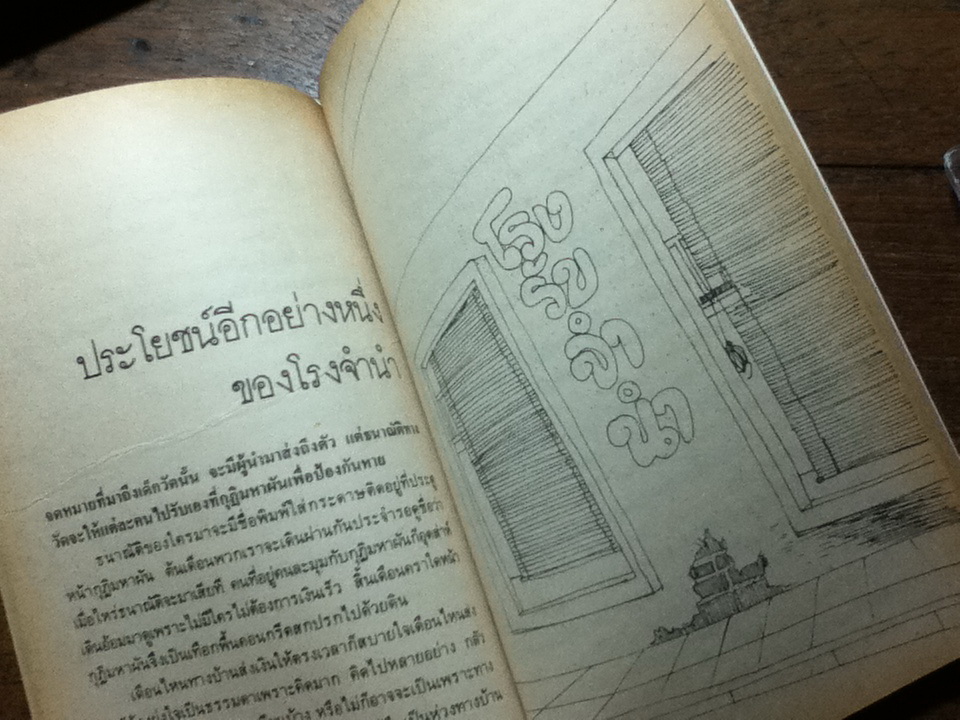 ประโยชน์อีกอย่างหนึ่ง
ของโรงจำนำ
จดหมายที่มาถึงเด็กวัดนั้น จะมีผู้นำมาส่งถึงตัว แต่ธนาณัติทาง
วัดจะให้แต่ละคนไปรับเองที่กุฏิมหาผันเพื่อป้องกันหาย
ธนาณัติของใครมาจะมีชื่อพิมพ์ใส่กระดาษติดอยู่ที่ประตู
หน้ากุฏิมหาผัน ต้นเดือนพวกเราจะเดินผ่านกันประจำรอดูชื่อว่า
เมื่อไหร่ธนาณัติจะมาเสียที คนที่อยู่คนละมุมกับกุฏิมหาผันก็อุตส่าห์
เดินอ้อมมาดูเพราะไม่มีใครไม่ต้องการเงินเร็ว สิ้นเดือนคราใดหน้า
กุฏิมหาผันจึงเป็นเทือกพื้นคอนกรีตสกปรกไปด้วยดิน
เดือนไหนทางบ้านส่งเงินให้ตรงเวลาก็สบายใจเดือนไหนส่ง
เป็นธรรมดาเพราะคิดมาก คิดไปหลายอย่าง กลัว
บ้าง หรือไม่ก็อาจจะเป็นเพราะทาง
เป็นห่วงทางบ้าน
โรง
รับ
จำ
นำ